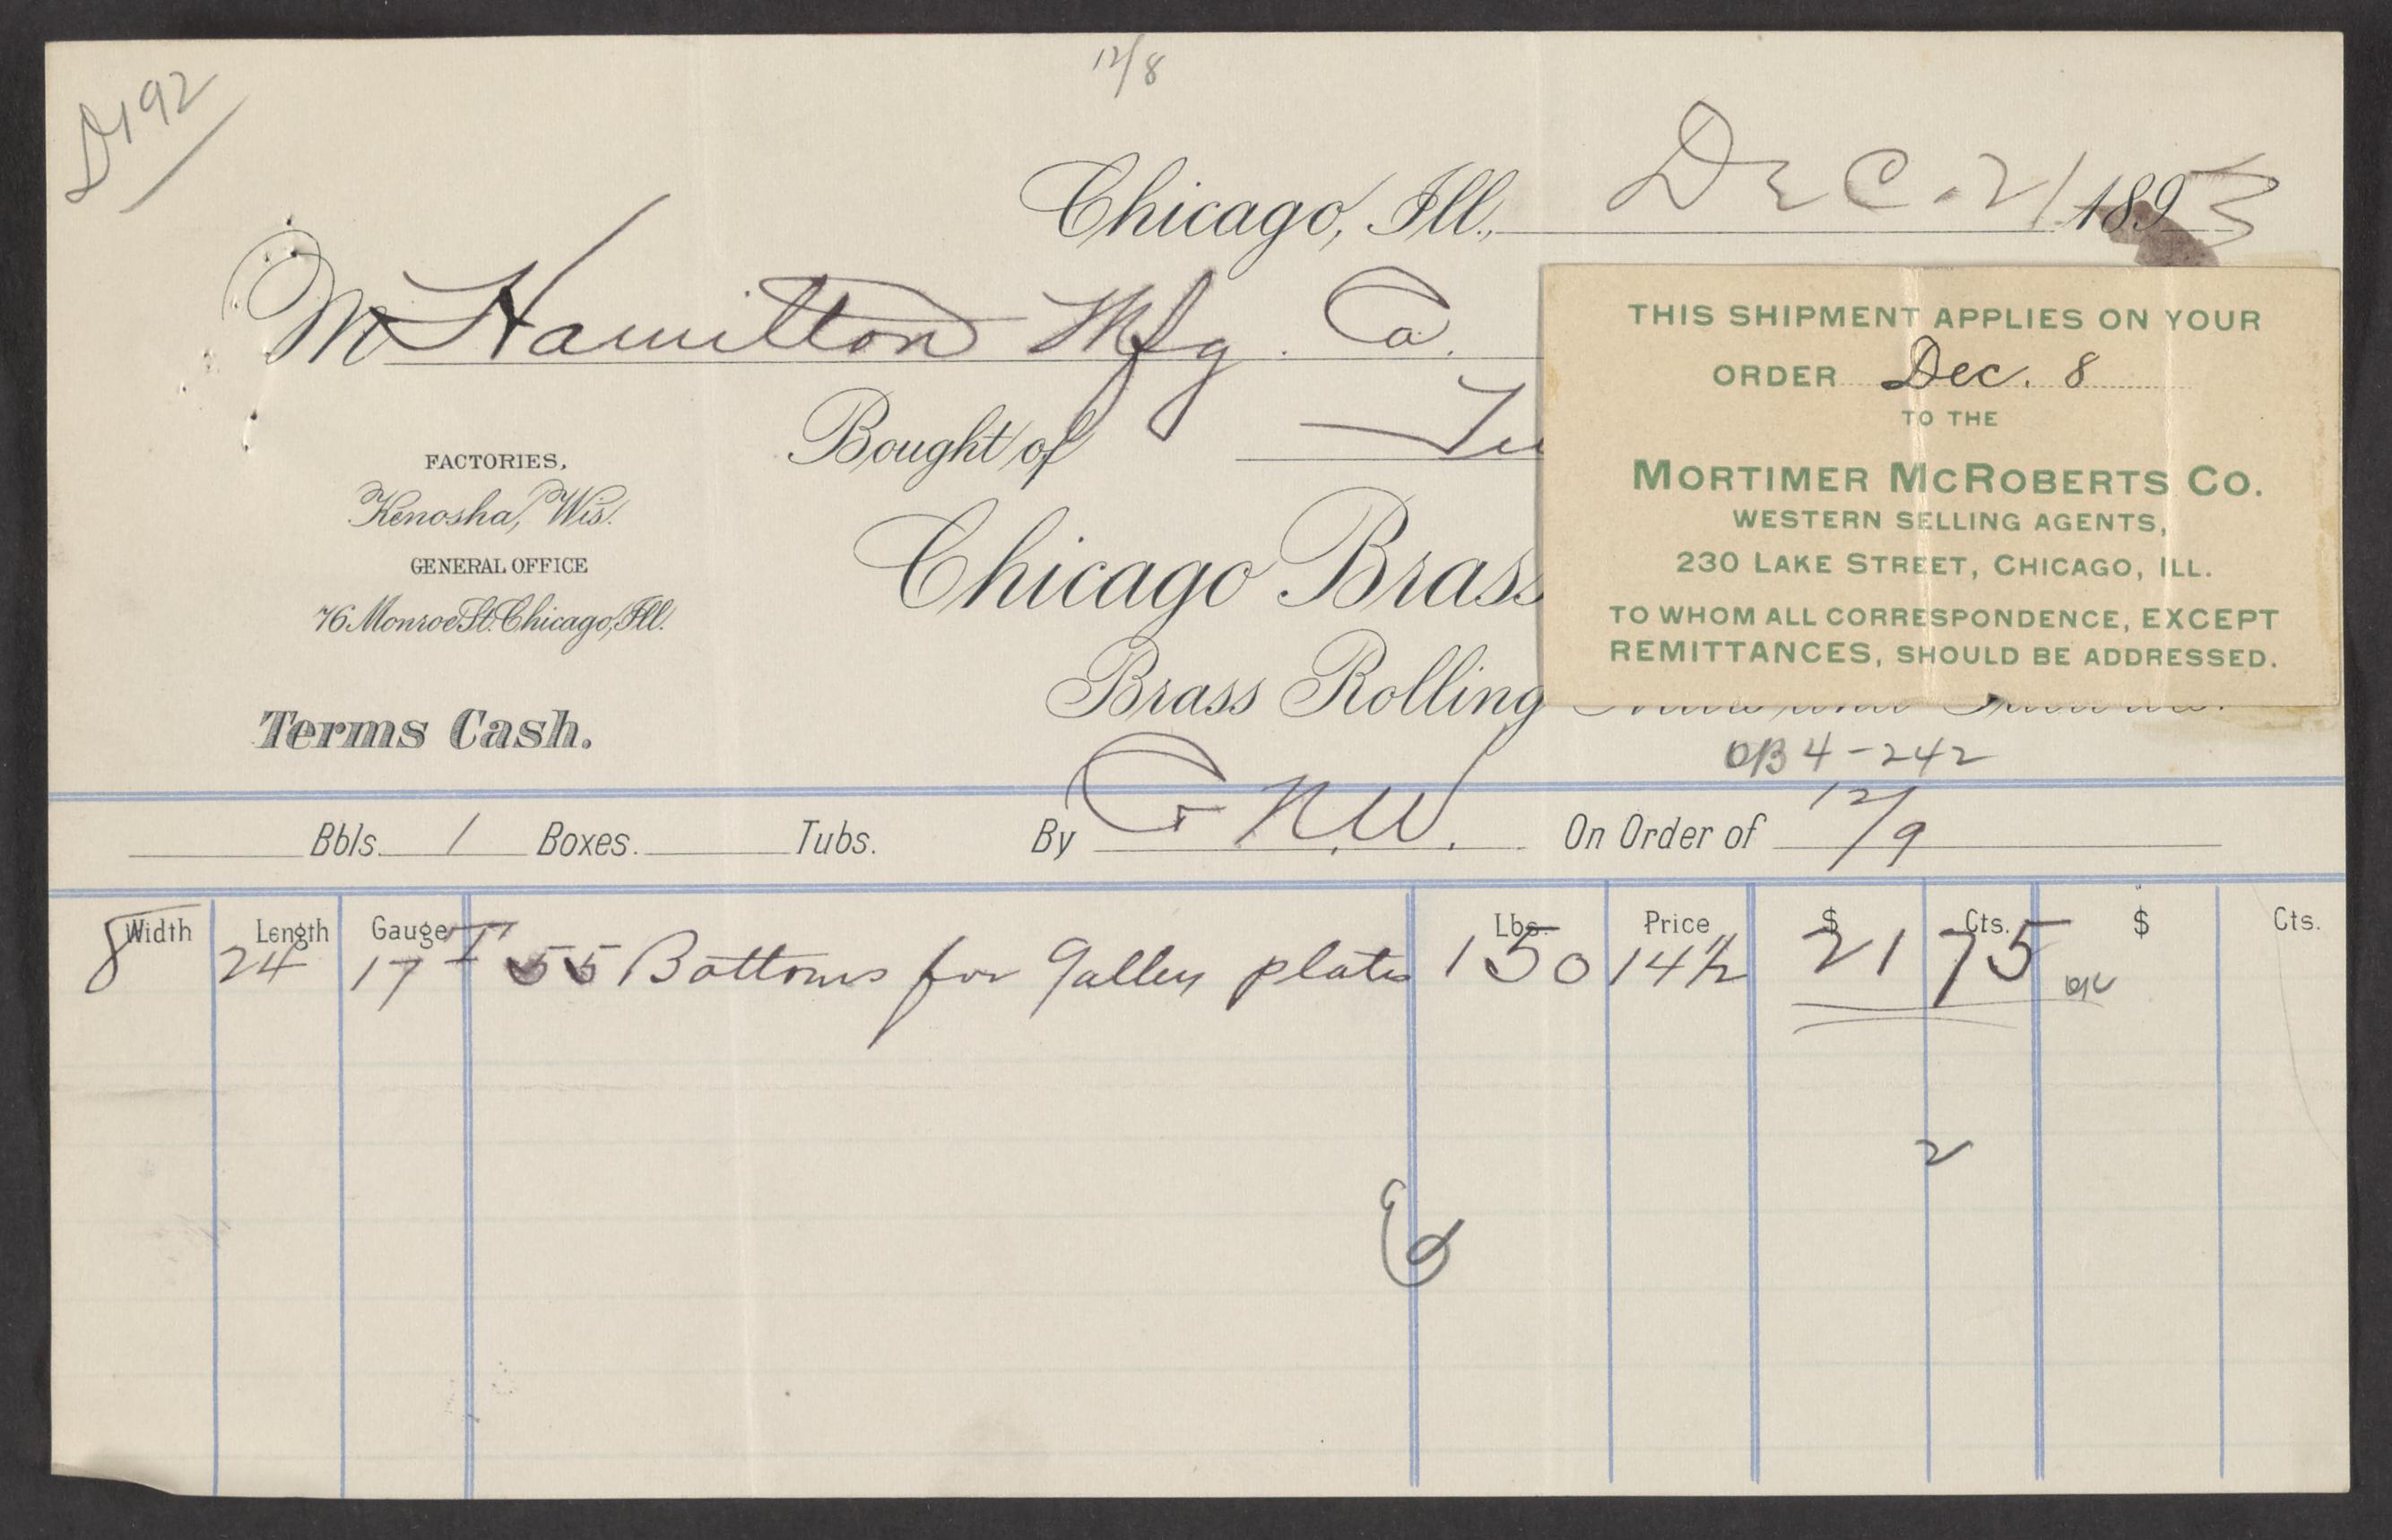 12/8
D192
Chicago, Ill., Dec. 21 1893
M Hamilton Mfg. Co.
Bought of
FACTORIES,
Kenosha, Wis.
GENERAL OFFICE
76 Monroe St. Chicago, Ill.
Terms Cash.
Chicago Brass
Brass Rolling
THIS SHIPMENT APPLIES ON YOUR
ORDER Dec. 8
TO THE
MORTIMER MCROBERTS CO.
WESTERN SELLING AGENTS,
230 LAKE STREET, CHICAGO, ILL.
TO WHOM ALL CORRESPONDENCE, EXCEPT
REMITTANCES, SHOULD BE ADDRESSED.
OB 4-242
Bbls. 1 Boxes. Tubs. By C N.W. On Order of 12/9
Width Length Gauge Lbs. Price $ Cts. $ Cts.
8 24 17 55 Bottoms for Galley plates 150 14½ 21 75 OK
2